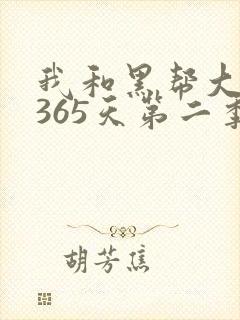 我和黑帮大
365天第二季
胡芳焦